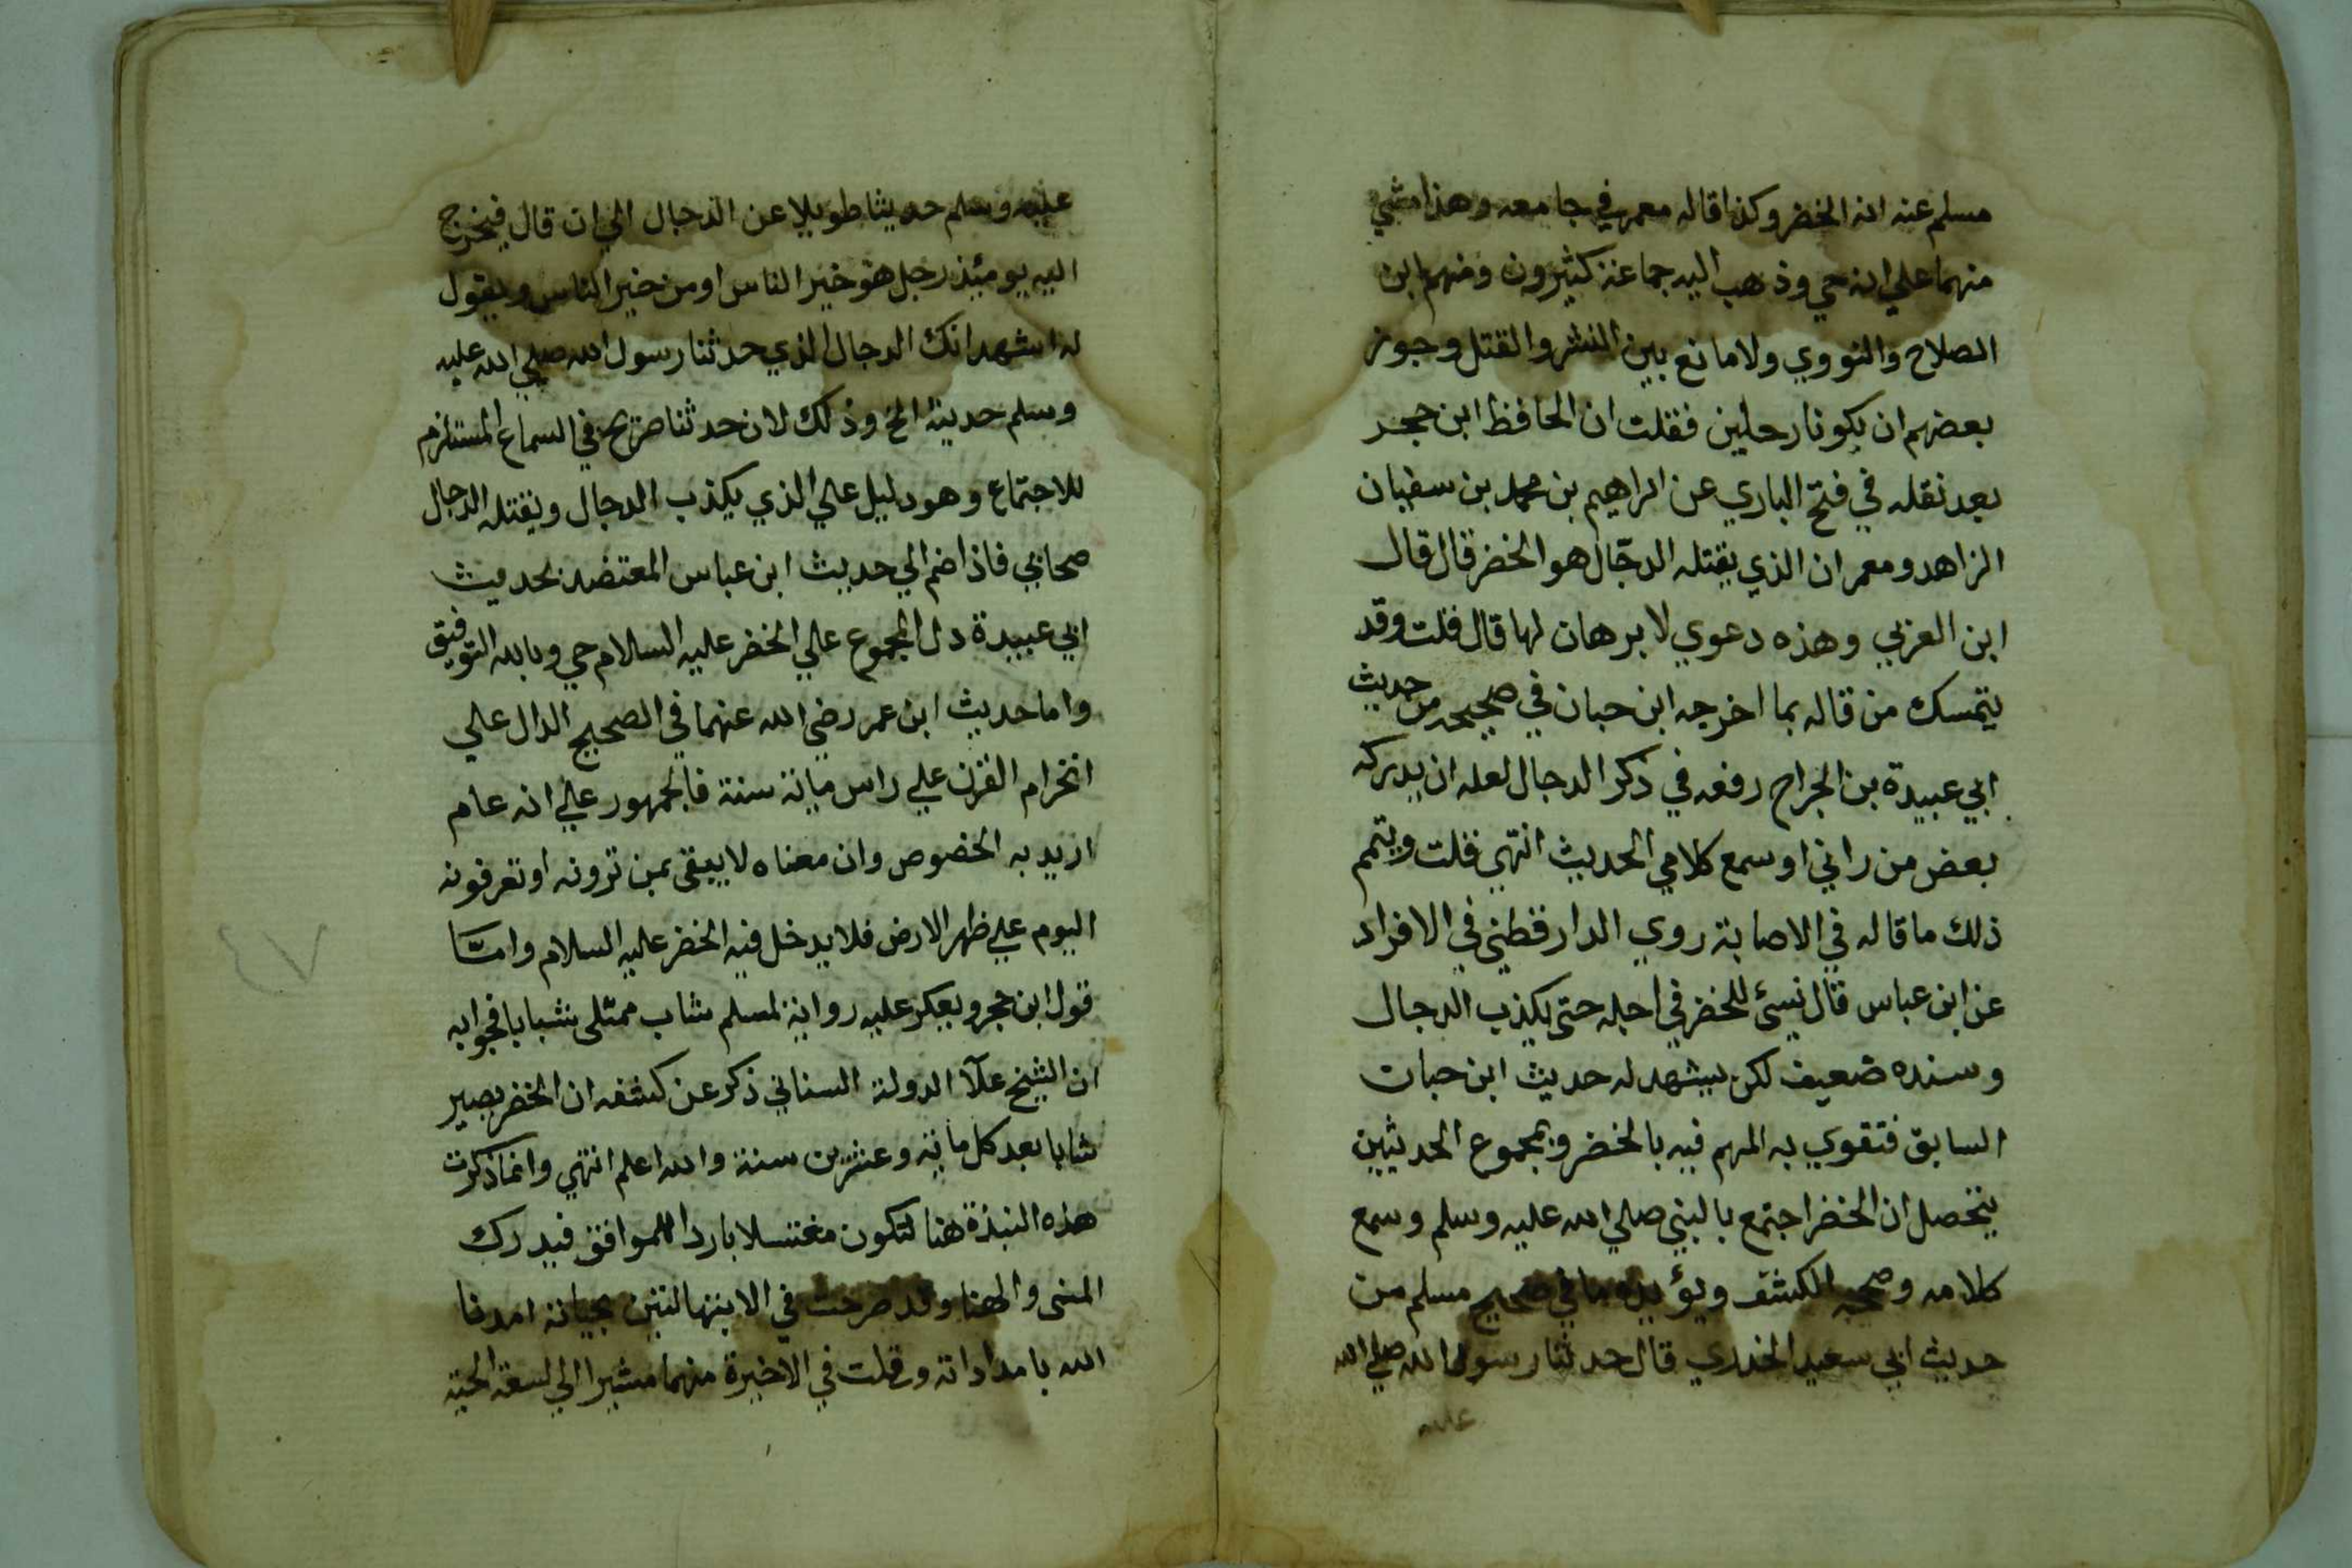 مسلم عنه انه الخضر وكذا قاله معمر في جامعه وهذا مشي
منهما علي انه حي وذهب اليه جماعة كثيرون ومنهم ابن
الصلاح والنووي ولا مانع بين النشر والقتل وجوز
بعضهم ان يكونا رجلين فقلت ان الحافظ ابن حجر
بعد نقله في فتح الباري عن ابراهيم بن محمد بن سفيان
الزاهد ومعمر ان الذي يقتله الدجّال هو الخضر قال قال
ابن العزبي وهذه دعوي لا برهان لها قال قلت وقد
يتمسك من قاله بما اخرجه ابن حبان في صحيحه من حديث
ابي عبيدة بن الجراح رفعه في ذكر الدجال لعله ان يدركه
بعض من راني او سمع كلامي الحديث انتهي قلت ويتمم
ذلك ما قاله في الاصابة روي الدارقطني في الافراد
عن ابن عباس قال نسئ للخضر في اجله حتى يكذب الدجال
وسنده ضعيف لكن يشهد له حديث ابن حبان
السابق فتقوي به المهم فيه بالخضر وبمجموع الحديثين
يتحصل ان الخضر اجتمع بالنبي صلي الله عليه وسلم وسمع
كلامه وصحبه الكشف ويؤيده ما في صحيح مسلم من
حديث ابي سعيد الخدري قال حدثنا رسول الله صلي الله
عليه
عليه وسلم حديثا طويلا عن الدجال الي ان قال فيخرج
اليه يومئذ رجل هو خير الناس او من خير الناس ويقول
له اشهد انك الدجال الذي حدثنا رسول الله صلي الله عليه
وسلم حديثه الخ وذلك لان حدثنا صريح في السماع المستلزم
للاجتماع وهو دليل علي الذي يكذب الدجال ويقتله الدجال
صحابي فاذا ضم الي حديث ابن عباس المعتضد بحديث
ابي عبيدة دل المجموع علي الخضر عليه السلام حي وبالله التوفيق
واما حديث ابن عمر رضي الله عنهما في الصحيح الدال علي
انخرام القرن علي راس ماية سنة فالجمهور علي انه عام
اريد به الخصوص وان معناه لا يبقى ممن ترونه او تعرفونه
اليوم علي ظهر الارض فلا يدخل فيه الخضر عليه السلام وامّا
قول ابن حجر ويعكر عليه رواية لمسلم شاب ممتلى شبابا فجوابه
ان الشيخ علآ الدولة السناني ذكر عن كشفه ان الخضر يصير
شابا بعد كل ماية وعشرين سنة والله اعلم انتهي وانما ذكرت
هذه النبذة هنا لتكون مغتسلا باردا للموافق فيدرك
المنى والهنا وقد صرحت في الابنتها لتين بحياته امدنا
الله بامداداته وقلت في الاخيرة منهما مشيرا الي لسعة الحية